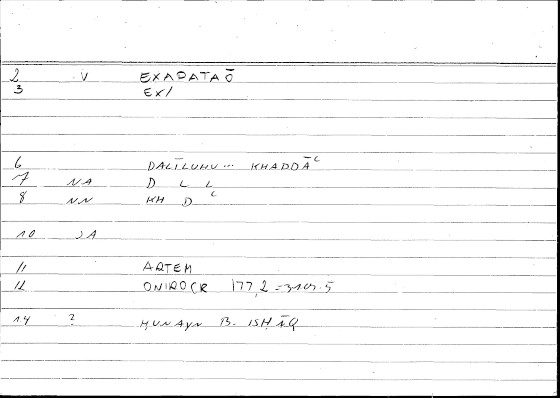 2 V EXAPATAŌ
3 EX/
6 DALĪLUHU... KHADDĀʿ
7 NA D L L
8 NN KH D ʿ
10 JA
11 ARTEM
12 ONIROCR 177,2
14 ? ḤUNAYN B. ISḤĀQ